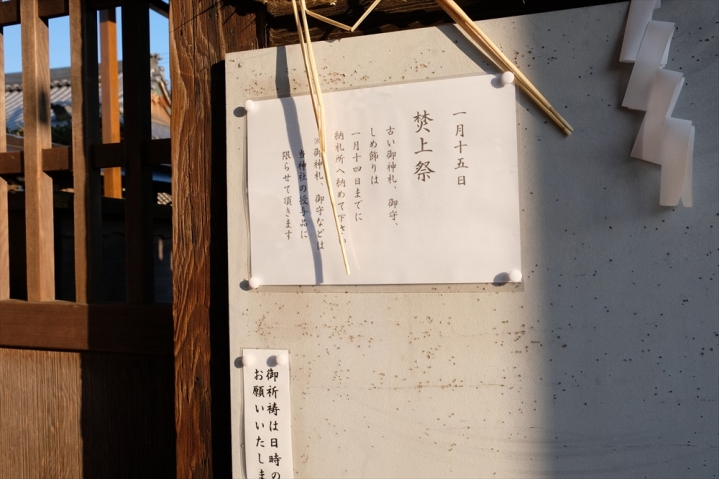 一月十五日
焚上祭
古い御神札、御守、
しめ飾りは
一月十四日までに
納札所へ納めて下さい
※御神札、御守などは
当神社の授与品に
限らせて頂きます
御祈祷は日時の
お願いいたしま